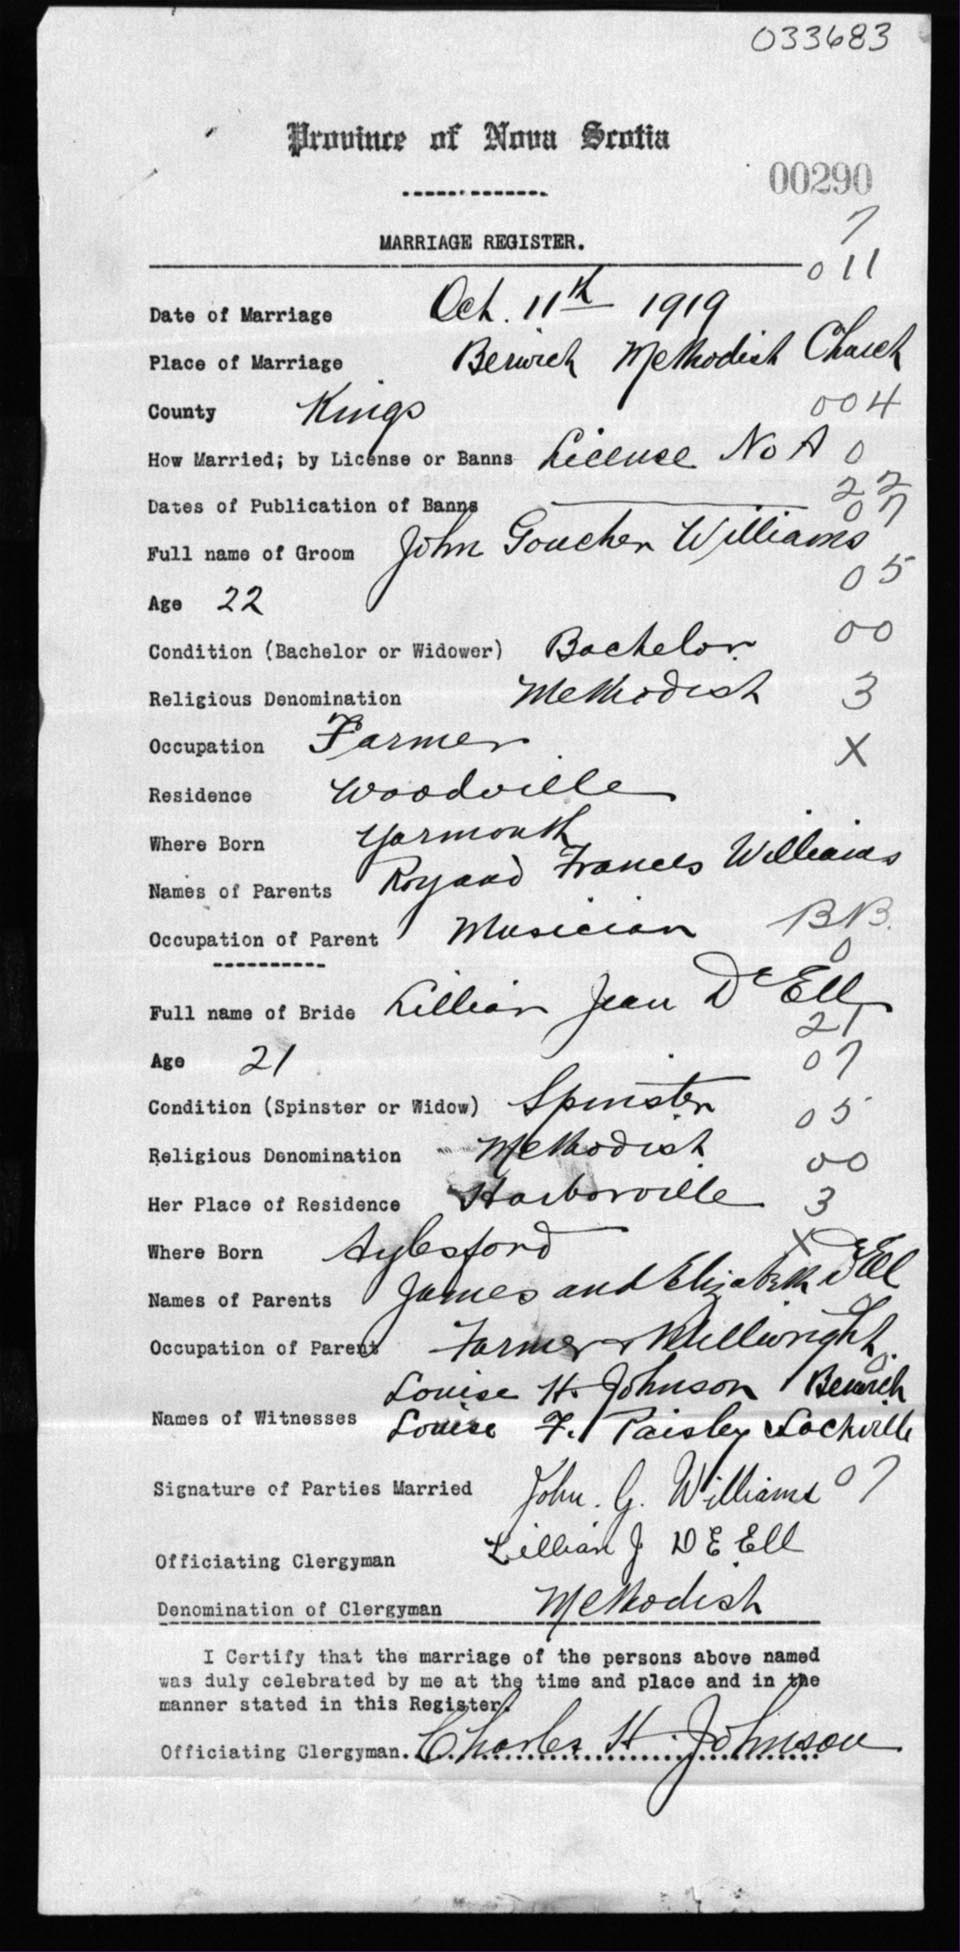 033683
Province of Nova Scotia
00290
7
MARRIAGE REGISTER.
011
Date of Marriage Oct. 11th 1919
Place of Marriage Berwick Methodist Church
County Kings 004
How Married; by License or Banns License No A 0
22
Dates of Publication of Banns 07
Full name of Groom John Goucher Williams
05
Age 22
Condition (Bachelor or Widower) Bachelor. 00
Religious Denomination Methodist 3
Occupation Farmer X
Residence Woodville
Where Born Yarmouth
Names of Parents Roy and Frances Williams
Occupation of Parent Musician BB.
0
Full name of Bride Lillian Jean DeEll
21
Age 21 07
Condition (Spinster or Widow) Spinster 05
Religious Denomination Methodist 00
Her Place of Residence Harborville 3
Where Born Aylesford X
Names of Parents James and Elizabeth DeEll
Occupation of Parent Farmer & Millwright.
Louise H. Johnson Berwick
Names of Witnesses Louise F. Paisley Sackville
Signature of Parties Married John. G. Williams 07
Lillian J DEEll
Officiating Clergyman
Denomination of Clergyman Methodist
I Certify that the marriage of the persons above named
was duly celebrated by me at the time and place and in the
manner stated in this Register.
Officiating Clergyman. Charles H. Johnson